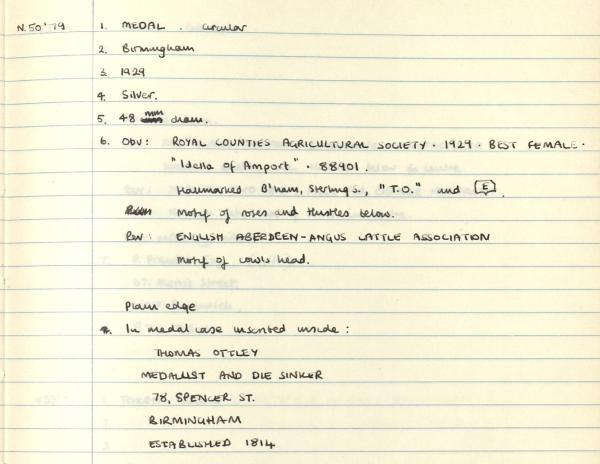 N.50'79 1. MEDAL . circular
2. Birmingham
3. 1929
4. Silver.
5. 48 mm diam.
6. Obv: ROYAL COUNTIES AGRICULTURAL SOCIETY · 1929 · BEST FEMALE ·
"Idella of Amport" · 88901.
Hallmarked B'ham, Sterling s., "T.O." and E.
Motif of roses and thistles below.
Rev: ENGLISH ABERDEEN-ANGUS CATTLE ASSOCIATION
Motif of cow's head.
Plain edge
In medal case inscribed inside:
THOMAS OTTLEY
MEDALLIST AND DIE SINKER
78, SPENCER ST.
BIRMINGHAM
ESTABLISHED 1814